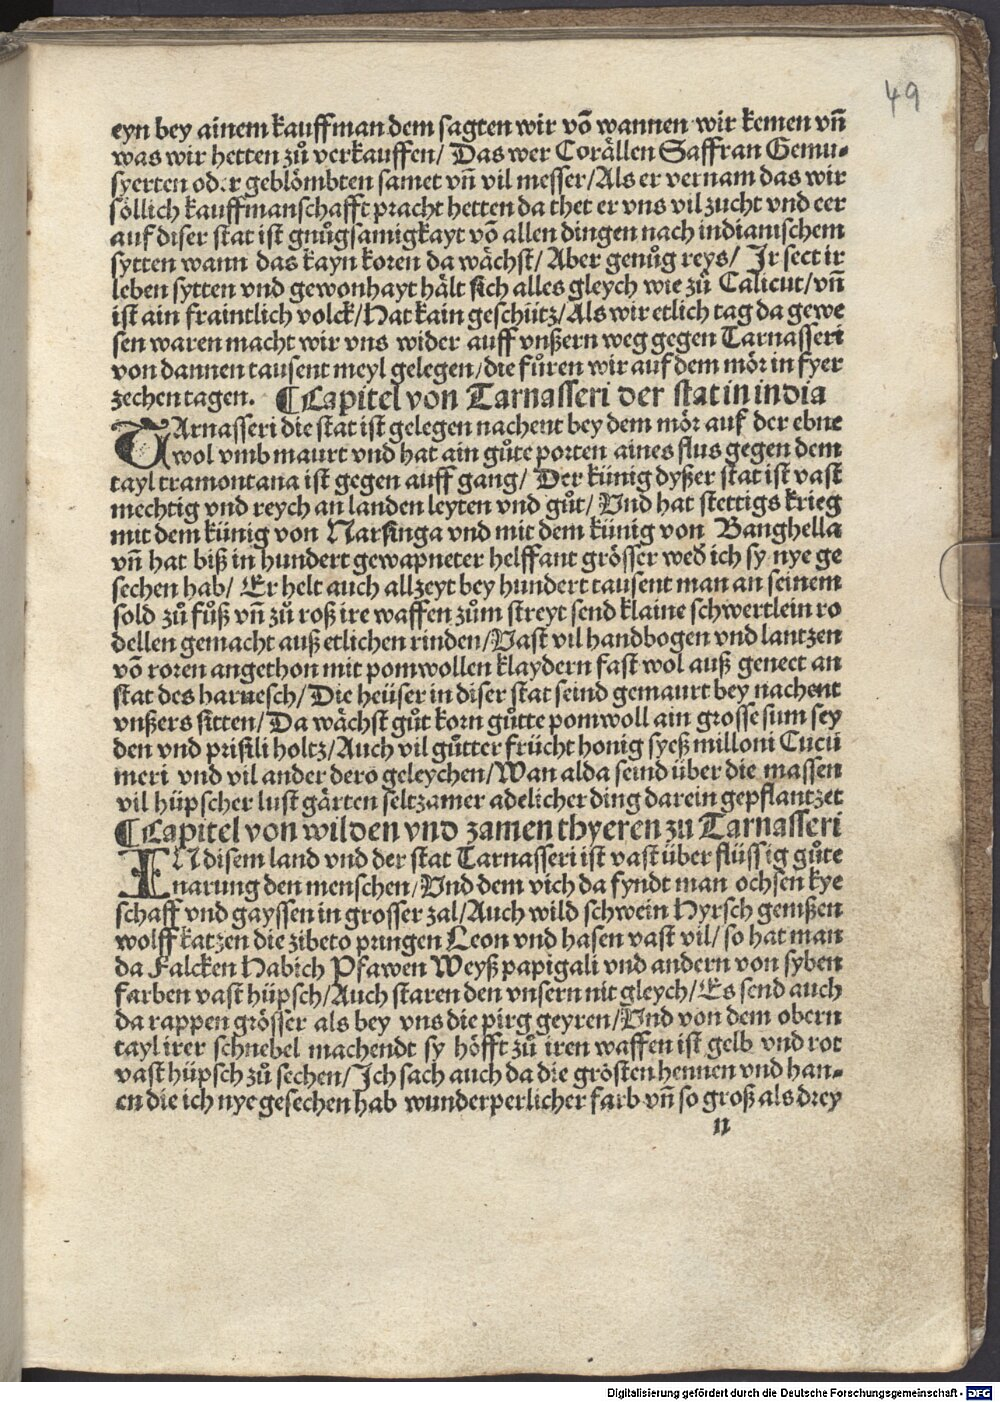 49
eyn bey ainem kauffman dem sagten wir võ wannen wir kemen vñ
was wir hetten zů verkauffen/ Das wer Corållen Saffran Gemu-
syerten oder geblömbten samet vñ vil messer/Als er vernam das wir
söllich kauffmanschafft pracht hetten da thet er vns vil zucht vnd eer
auf diser stat ist gnůgsamigkayt võ allen dingen nach indianischem
sytten wann das kayn koren da wåchst/ Aber genůg reys/ Jr sect ir
leben sytten vnd gewonhayt hålt sich alles gleych wie zů Calicut/vñ
ist ain fraintlich volck/Hat kain geschütz/Als wir etlich tag da gewe
sen waren macht wir vns wider auff vnßern weg gegen Tarnasseri
von dannen tausent meyl gelegen/die fůren wir auf dem mör in fyer
zechen tagen. ¶Capitel von Tarnasseri der stat in india
TArnasseri die stat ist gelegen nachent bey dem mör auf der ebne
wol vmb maurt vnd hat ain gůte porten aines flus gegen dem
tayl tramontana ist gegen auff gang/ Der künig dyßer stat ist vast
mechtig vnd reych an landen leyten vnd gůt/ Vnd hat stettigs krieg
mit dem künig von Narsinga vnd mit dem künig von Banghella
vñ hat biß in hundert gewapneter helffant grösser wed̛ ich sy nye ge
sechen hab/ Er helt auch allzeyt bey hundert tausent man an seinem
sold zů fůß vñ zů roß ire waffen zům streyt send klaine schwertlein ro
dellen gemacht auß etlichen rinden/Vast vil handbogen vnd lantzen
võ roren angethon mit pomwollen klaydern fast wol auß genect an
stat des harnesch/Die heüser in diser stat seind gemaurt bey nachent
vnßers sitten/Da wåchst gůt korn gůtte pomwoll ain grosse sum sey
den vnd prisili holtz/Auch vil gůtter frücht honig syeß milloni Cucu
meri vnd vil ander dero geleychen/Wan alda seind über die massen
vil hüpscher lust gårten seltzamer adelicher ding darein gepflantzet
¶Capitel von wilden vnd zamen thyeren zu Tarnasseri
IN disem land vnd der stat Tarnasseri ist vast über flüssig gůte
narung den menschen/Vnd dem vich da fyndt man ochsen kye
schaff vnd gayssen in grosser zal/Auch wild schwein Hyrsch gemßen
wolff katzen die zibeto pringen Leon vnd hasen vast vil/ so hat man
da Falcken Habich Pfawen Weyß papigali vnd andern von syben
farben vast hüpsch/Auch staren den vnsern nit gleych/Es send auch
da rappen grösser als bey vns die pirg geyren/Vnd von dem obern
tayl irer schnebel machendt sy höfft zů iren waffen ist gelb vnd rot
vast hüpsch zů sechen/Jch sach auch da die grösten hennen vnd han-
en die ich nye gesechen hab wunderperlicher farb vñ so groß als drey
n
Digitalisierung gefördert durch die Deutsche Forschungsgemeinschaft - DFG